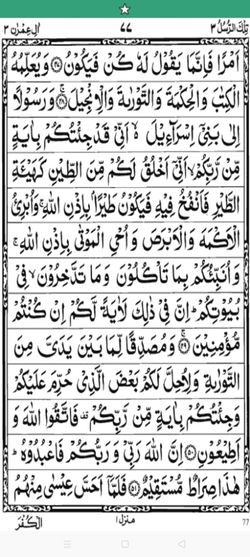 تِلْكَ الرُّسُلُ ٣ ٧٧ اٰلِ عِمْرٰن ٣
اَمْرًا فَاِنَّمَا يَقُوْلُ لَهٗ كُنْ فَيَكُوْنُ ﴿۴۷﴾ وَيُعَلِّمُهُ
الْكِتٰبَ وَالْحِكْمَةَ وَالتَّوْرٰىةَ وَالْاِنْجِيْلَ ﴿۴۸﴾ وَرَسُوْلًا
اِلٰى بَنِىْٓ اِسْرَآءِيْلَ ۙ اَنِّىْ قَدْ جِئْتُكُمْ بِاٰيَةٍ
مِّنْ رَّبِّكُمْ ۙ اَنِّىْٓ اَخْلُقُ لَكُمْ مِّنَ الطِّيْنِ كَهَيْئَةِ
الطَّيْرِ فَاَنْفُخُ فِيْهِ فَيَكُوْنُ طَيْرًاۢ بِاِذْنِ اللّٰهِ ۚ وَاُبْرِئُ
الْاَكْمَهَ وَالْاَبْرَصَ وَاُحْىِ الْمَوْتٰى بِاِذْنِ اللّٰهِ ۚ
وَاُنَبِّئُكُمْ بِمَا تَاْكُلُوْنَ وَمَا تَدَّخِرُوْنَ ۙ فِىْ
بُيُوْتِكُمْ ؕ اِنَّ فِىْ ذٰلِكَ لَاٰيَةً لَّكُمْ اِنْ كُنْتُمْ
مُّؤْمِنِيْنَ ﴿۴۹﴾ وَمُصَدِّقًا لِّمَا بَيْنَ يَدَىَّ مِنَ
التَّوْرٰىةِ وَلِاُحِلَّ لَكُمْ بَعْضَ الَّذِىْ حُرِّمَ عَلَيْكُمْ
وَجِئْتُكُمْ بِاٰيَةٍ مِّنْ رَّبِّكُمْ ۗ فَاتَّقُوا اللّٰهَ وَ
اَطِيْعُوْنِ ﴿۵۰﴾ اِنَّ اللّٰهَ رَبِّىْ وَرَبُّكُمْ فَاعْبُدُوْهُ ؕ
هٰذَا صِرَاطٌ مُّسْتَقِيْمٌ ﴿۵۱﴾ فَلَمَّآ اَحَسَّ عِيْسٰى مِنْهُمُ
الْكُفْرَ منزل ١ 77